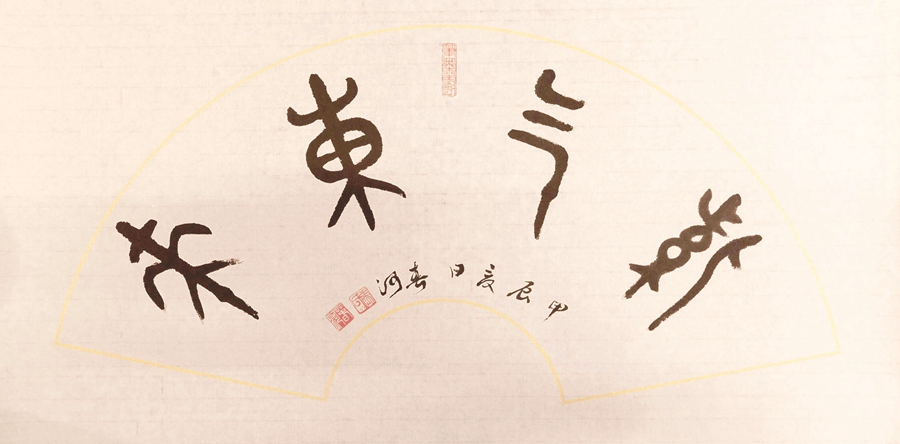 紫气東來
甲辰夏日春河